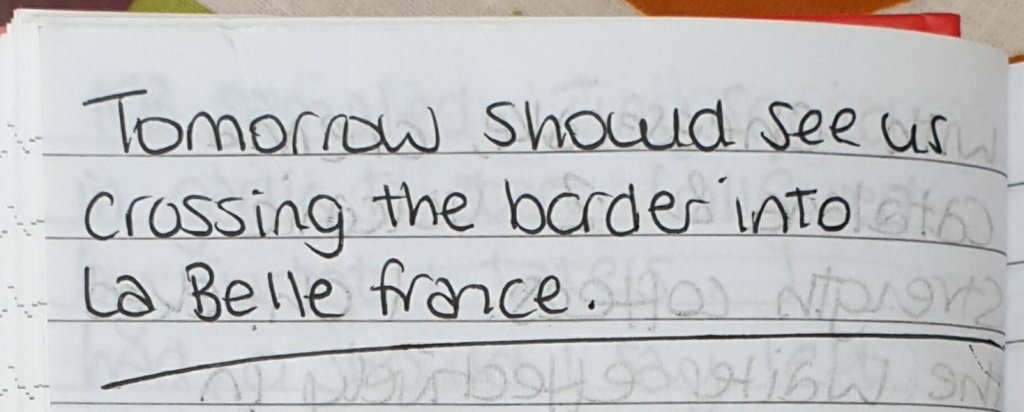 Tomorrow should see us
crossing the border into
La Belle france.